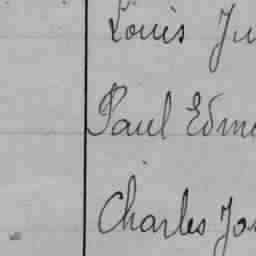 Louis Ju
Paul Edm
Charles Jo